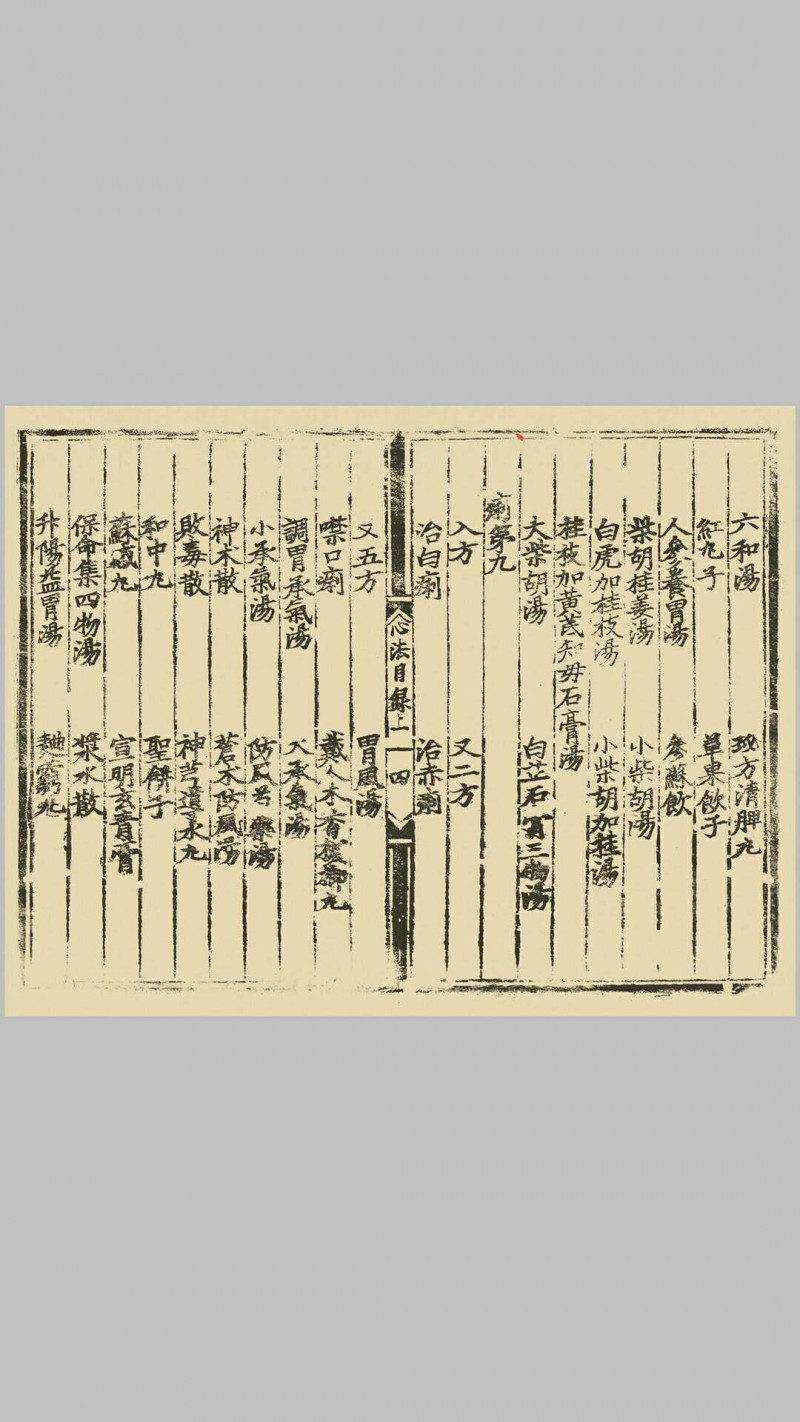 六和湯　　方清脾丸
紅丸子　　草果飲子
人參養胃湯　　參蘇飲
柴胡桂姜湯　　小柴胡湯
白虎加桂枝湯　　小柴胡加桂湯
桂枝加黃芪知毋石膏湯
大柴胡湯　　白芷石膏三物湯
痢第九
入方　　又二方
治白痢　　治赤痢
心法目錄上　四
又五方　　胃風湯
噤口痢　　戴人木香檳榔丸
調胃承氣湯　　大承氣湯
小承氣湯　　防風芍藥湯
神术散　　蒼术防風湯
敗毒散　　神芎導水丸
和中丸　　聖餅子
蘇感丸　　宣明玄青膏
保命集四物湯　　漿水散
升陽益胃湯